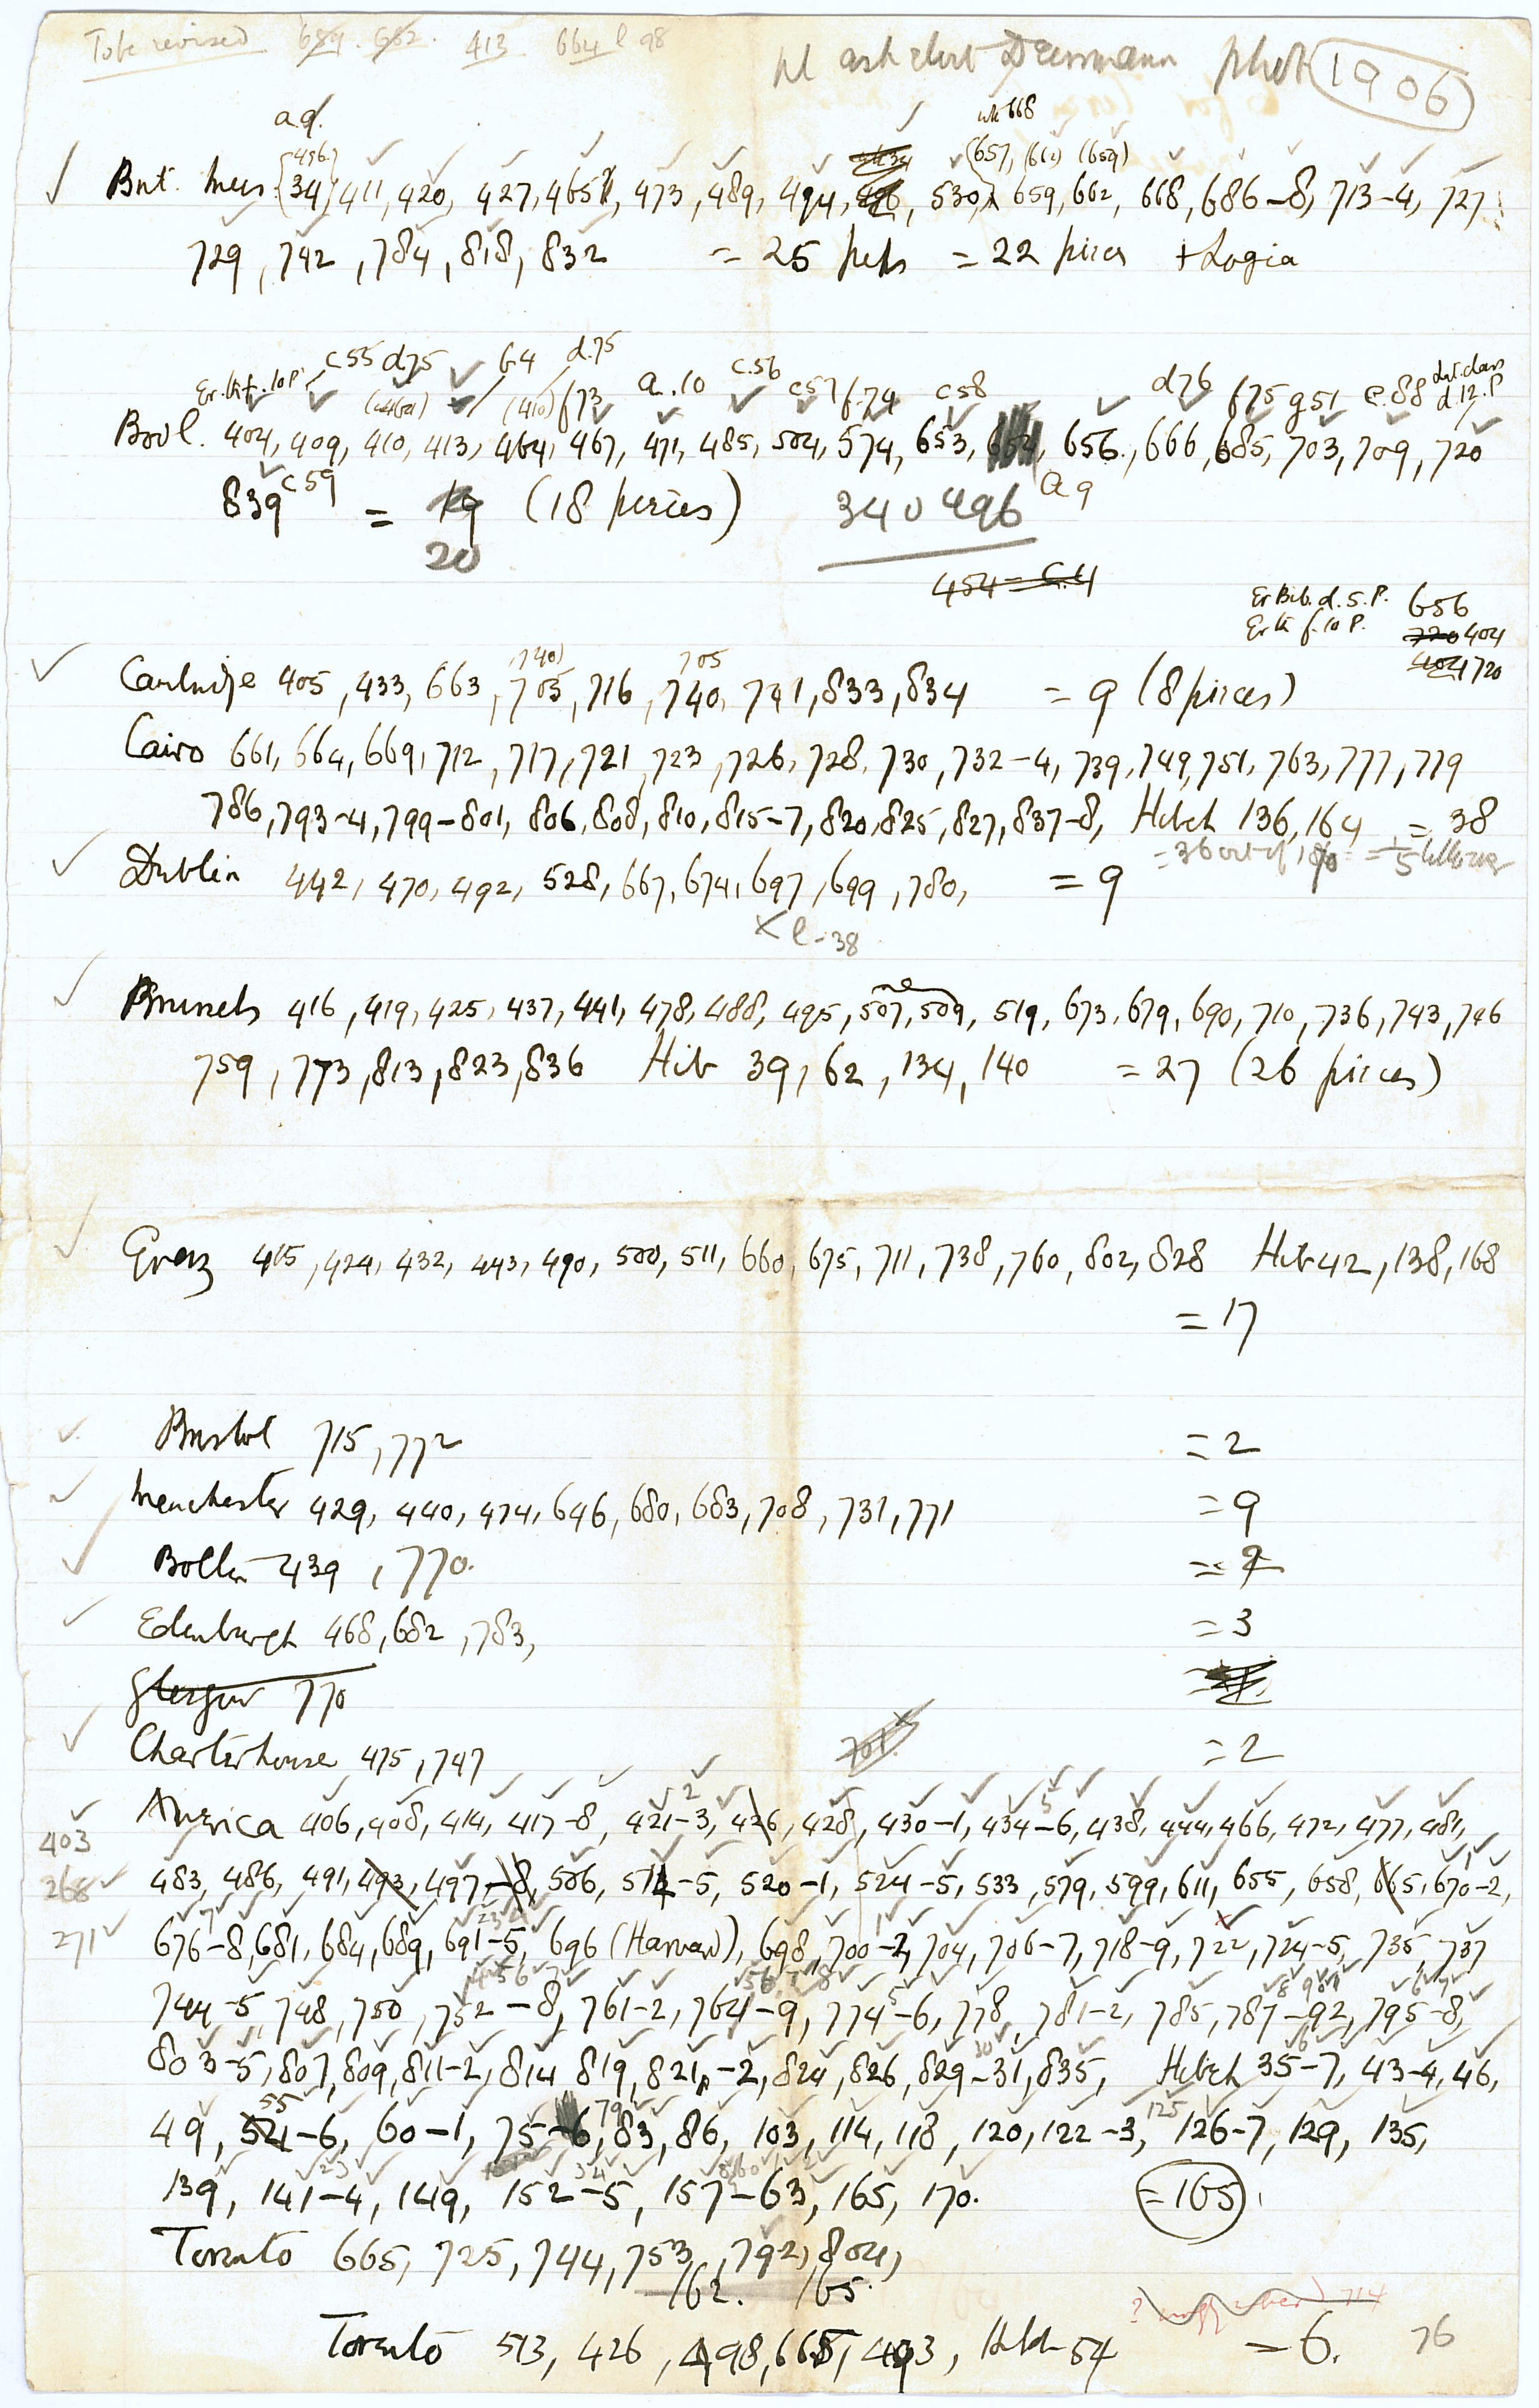 To be revised 689. 662. 413 664 l 98
ask about Deissmann phot 1906
a.9.
(496.) wh 668
(657) (662) (659)
Brit. Mus. {34} 411, 420, 427, 465, 473, 489, 494, 496, 530, 659, 662, 668, 686-8, 713-4, 727
729, 742, 784, 818, 832 = 25 paps = 22 pieces + Logia
c55 d75 64 d.75
(464) (410) f73 a.10 c.56 c57 f.74 c58 d76 f75 g51 e.88 d.12.P
Bodl. 404, 409, 410, 413, 464, 467, 471, 485, 504, 574, 653, 654, 656, 666, 685, 703, 709, 720
a9
839 c59 = 19 (18 pieces) 340 496
20
454 = G.4
Gr Bib. d. 5. P. 656
Gr lit f. 10 P. 720 404
404 720
(740) 705
Cambridge 405, 433, 663, 705, 716, 740, 741, 833, 834 = 9 (8 pieces)
Cairo 661, 664, 669, 712, 717, 721, 723, 726, 728, 730, 732-4, 739, 749, 751, 763, 777, 779
786, 793-4, 799-801, 806, 808, 810, 815-7, 820, 825, 827, 837-8, Hibeh 136, 164 = 38
= 36 out of
Dublin 442, 470, 492, 528, 667, 674, 697, 699, 780, = 9
× l-38
Brussels 416, 419, 425, 437, 441, 478, 488, 495, 507, 509, 519, 673, 679, 690, 710, 736, 743, 746
759, 773, 813, 823, 836 Hib 39, 62, 134, 140 = 27 (26 pieces)
Graz 415, 424, 432, 443, 490, 500, 511, 660, 675, 711, 738, 760, 802, 828 Hib 42, 138, 168
= 17
Bristol 715, 772 = 2
Manchester 429, 440, 474, 646, 680, 683, 708, 731, 771 = 9
Bolton 439, 770. = 2
Edenburgh 468, 682, 783, = 3
Glasgow 770
Charterhouse 475, 747 701 = 2
403 America 406, 408, 414, 417-8, 421-3, 426, 428, 430-1, 434-6, 438, 444, 466, 472, 477, 481,
268 483, 486, 491, 493, 497-8, 506, 514-5, 520-1, 524-5, 533, 579, 599, 611, 655, 658, 665, 670-2,
271 676-8, 681, 684, 689, 691-5, 696 (Harvard), 698, 700-2, 704, 706-7, 718-9, 722, 724-5, 735, 737
744-5, 748, 750, 752-8, 761-2, 764-9, 774-6, 778, 781-2, 785, 787-92, 795-8,
803-5, 807, 809, 811-2, 814 819, 821, -2, 824, 826, 829-31, 835, Hibeh 35-7, 43-4, 46,
49, 54-6, 60-1, 75-6, 79 83, 86, 103, 114, 118, 120, 122-3, 125 126-7, 129, 135,
139, 141-4, 149, 152-5, 157-63, 165, 170. = 165
Toronto 665, 725, 744, 753, 792, 804,
162. 165.
714
Toronto 513, 426, 498, 665, 493, Hibh 54 = 6. 76